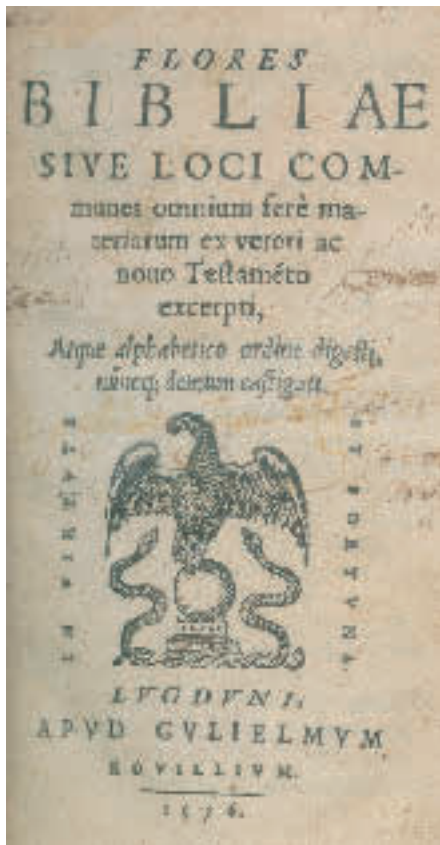 FLORES
BIBLIAE
SIVE LOCI COM-
munes omnium ferè ma-
teriarum ex veteri ac
nouo Testaméto
excerpti,
Atque alphabetico ordine digesti,
nuncq; demum castigati.
IN VIRTVTE
ET FORTVNA.
LVGDVNI,
APVD GVLIELMVM
ROVILLIVM.
1576.